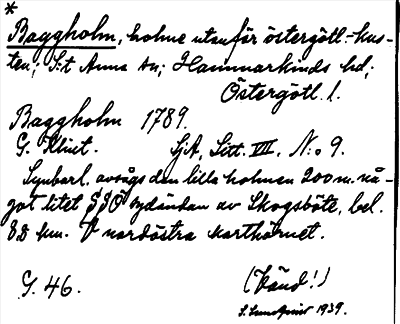 *
Baggholm, holme utanför östergötl.-kus-
ten; S:t Anna sn; Hammarkinds hd;
Östergötl. l.
Baggholm 1789.
G. Klint. SjA, Litt. VIII, N:o 9.
Synbarl. avsågs den lilla holmen 200 m. nå-
got litet SSO sydändan av Skogsböte, bel.
8,8 km. V nordöstra karthörnet.
G. 46. (Vänd!)
S. Lundqvist 1939.